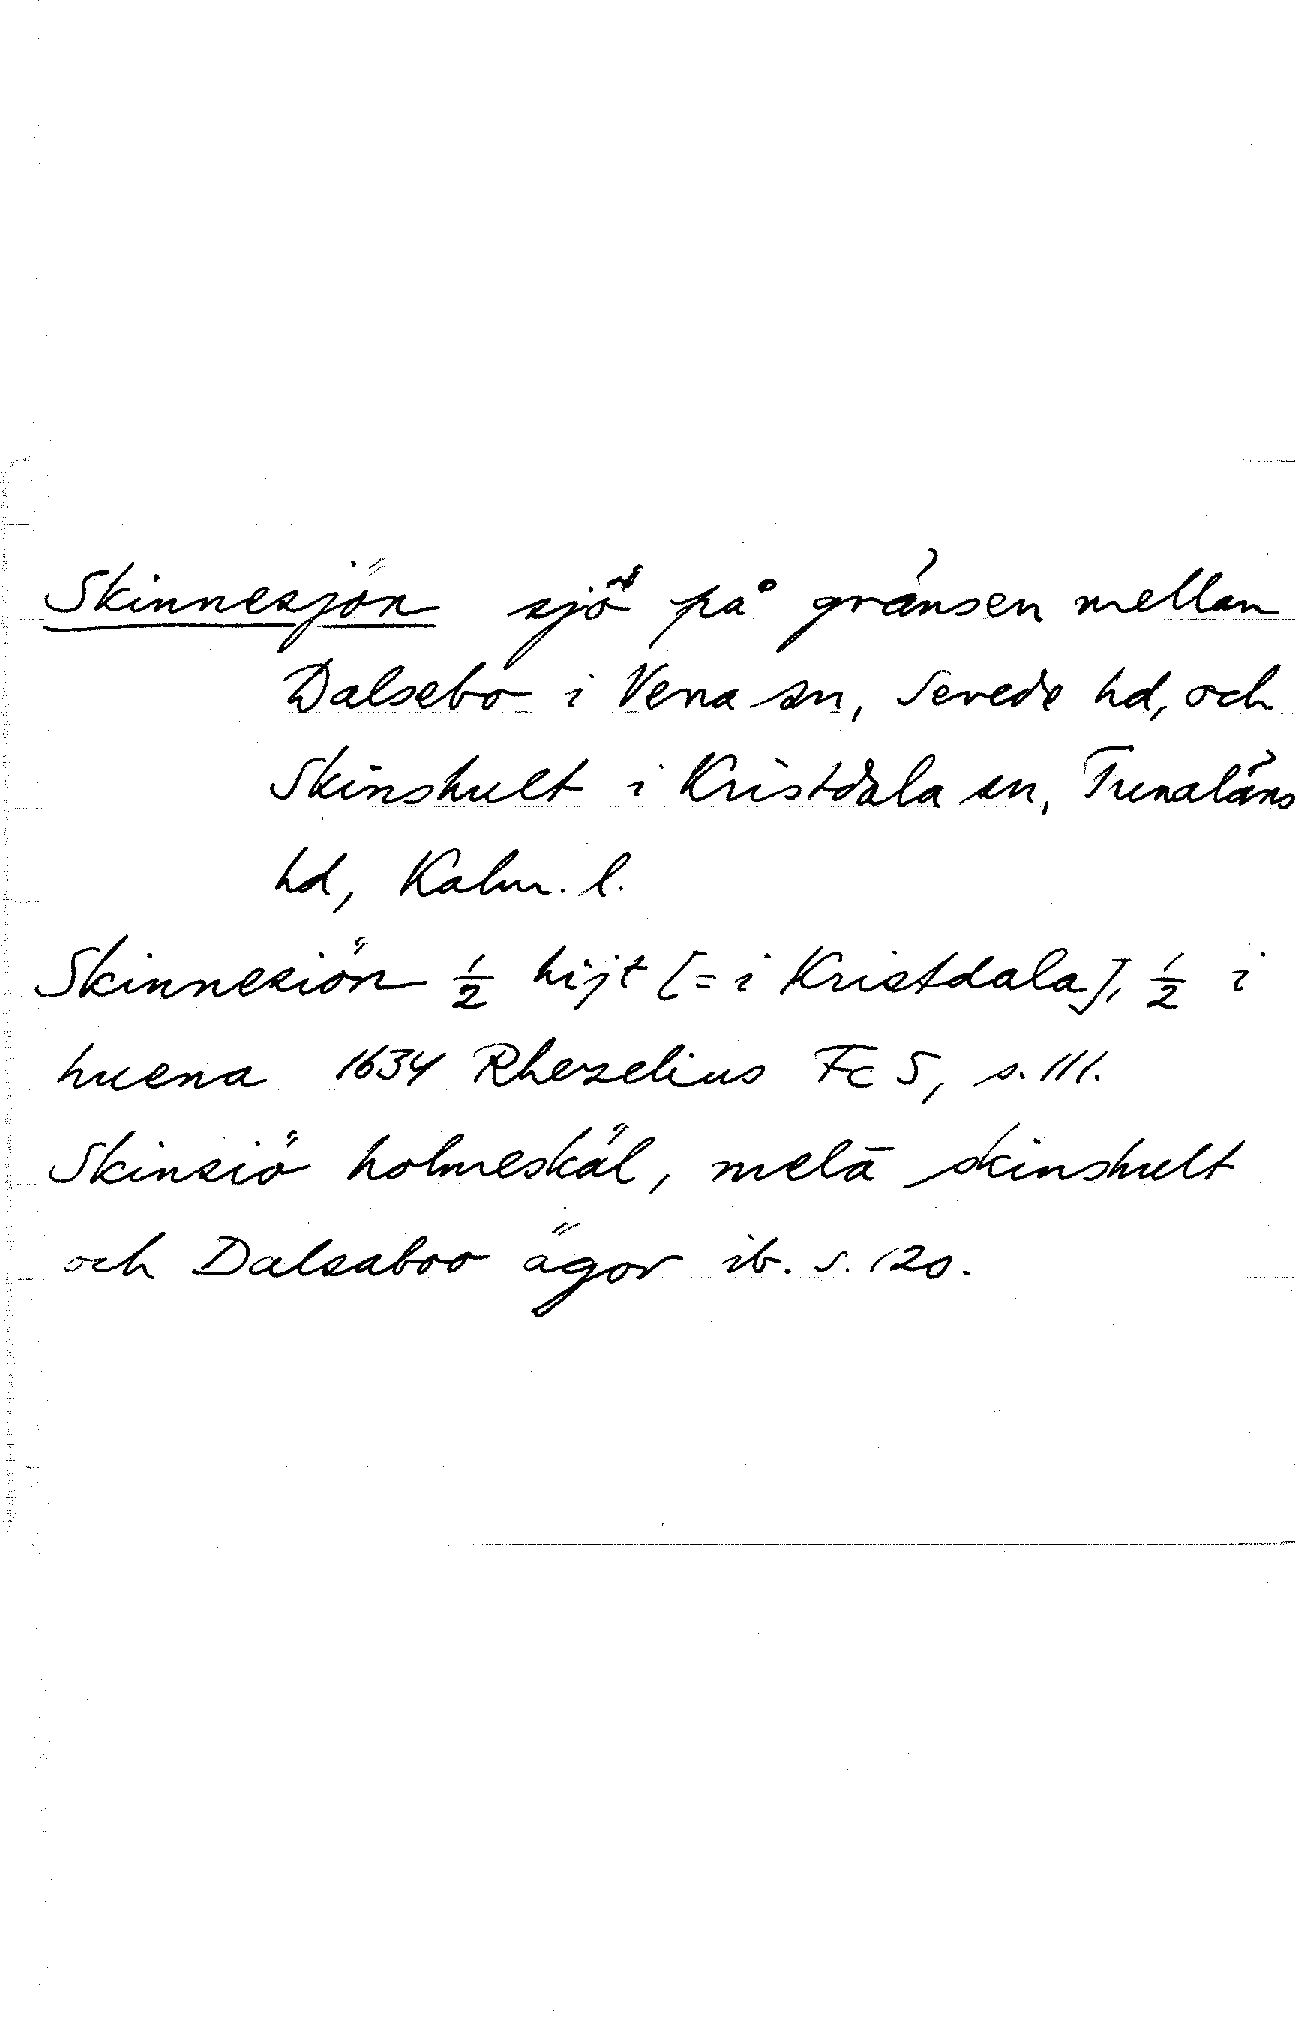 Skinnesjön sjö på gränsen mellan
Dalsebo i Vena sn, Sevede hd, och
Skinshult i Kristdala sn, Tunaläns
hd, Kalm. l.
Skinnesiön ½ hijt [= i Kristdala], ½ i
huena 1634 Rhezelius Fc 5, s. 111.
Skinsiö holmeskäl, melā skinshult
och Dalsaboo ägor ib. s. 120.